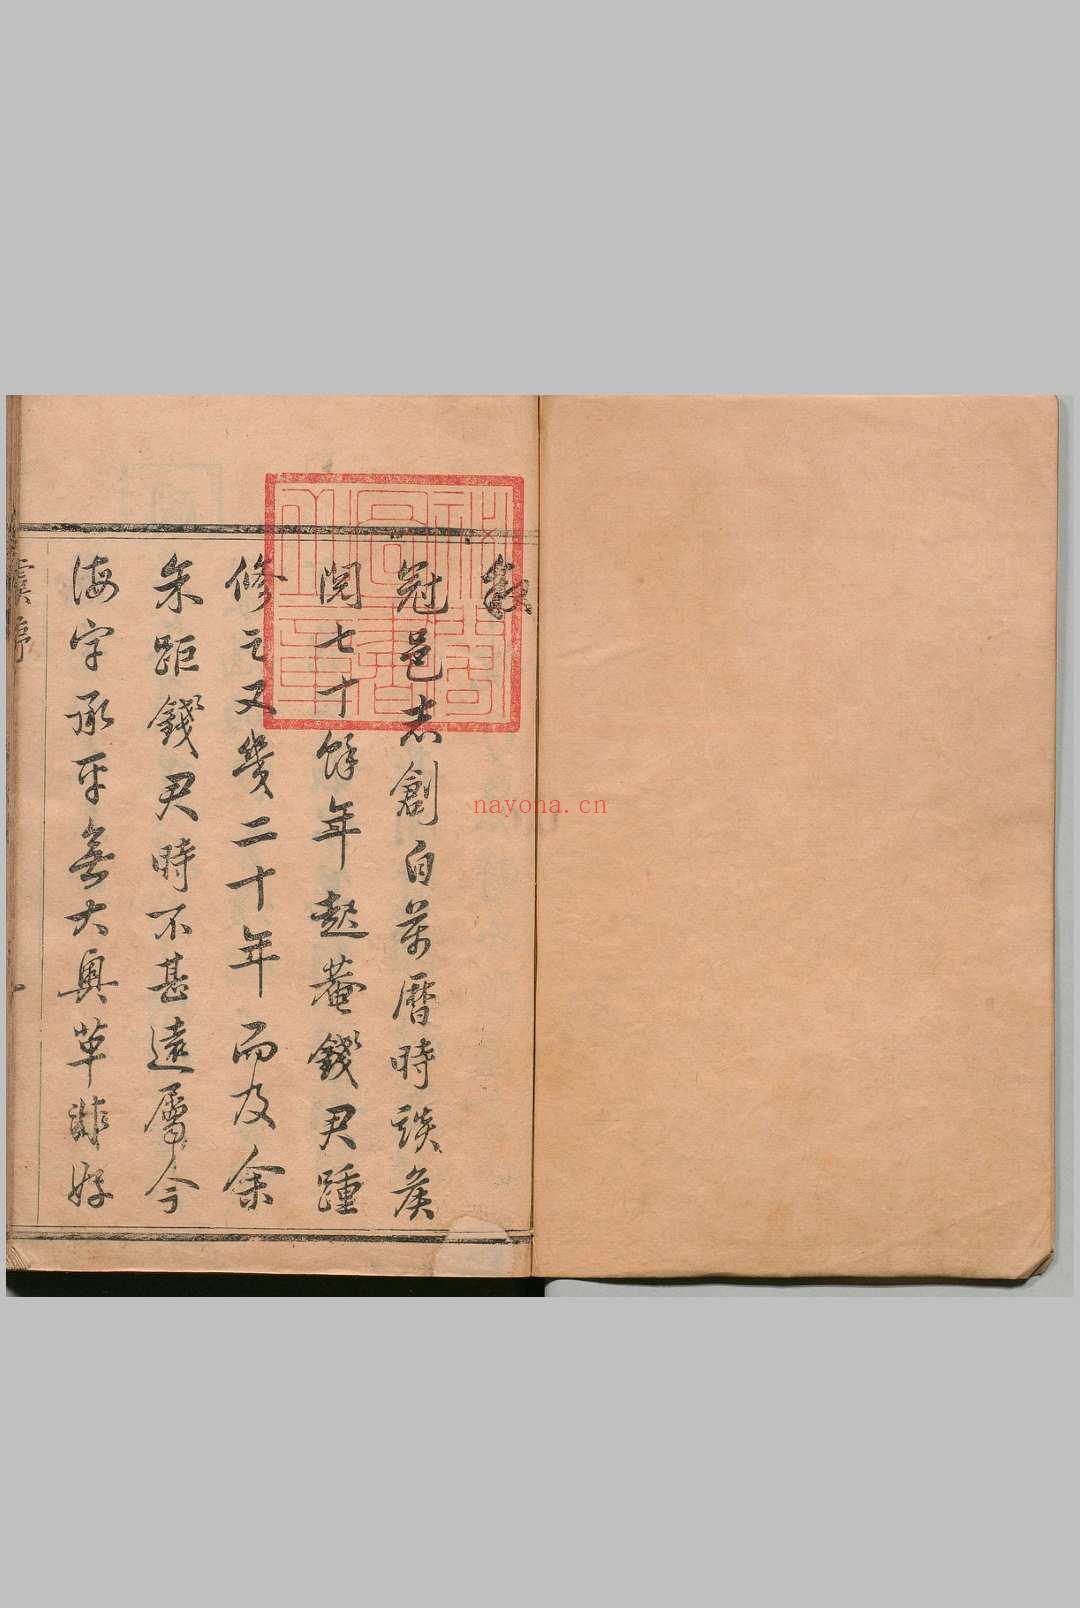 叙
冠邑志創自萬曆時談侯
閱七十餘年起菴錢君踵
修之又幾二十年而及余
余距錢君時不甚遠屬今
海宇承平無大興革非好
nayona.cn